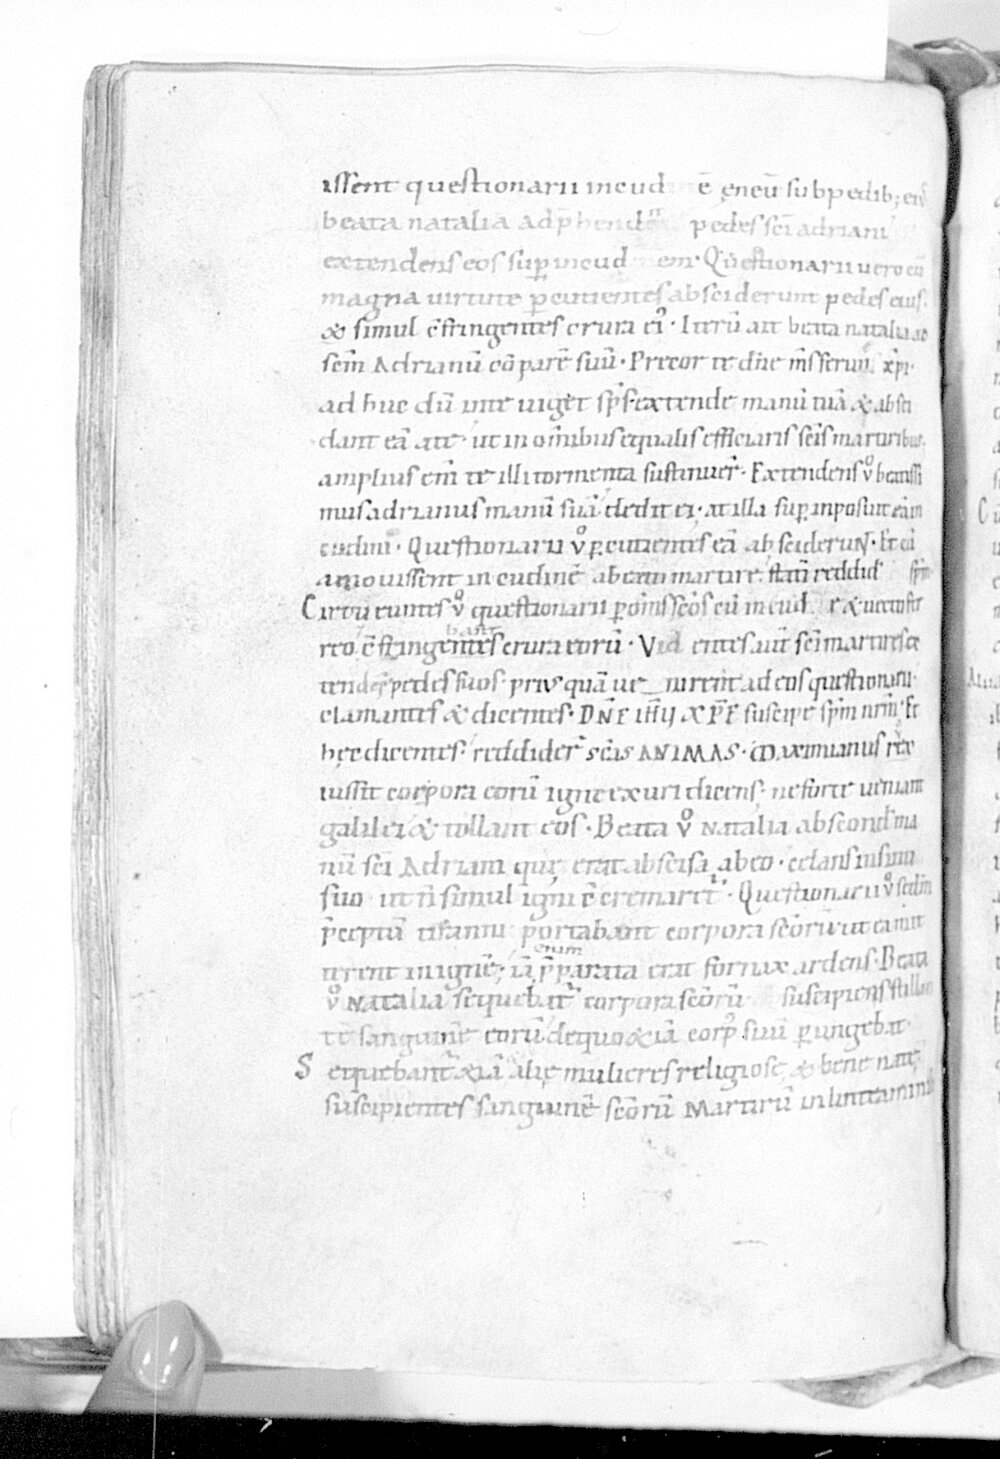 issent questionarii incudinē ęneū subpedib; eiꝰ
beata natalia adp̄hendēs pedes sc̄i adriani
extendens eos suꝑ incudinem · Questionarii uero cū
magna uirtute ꝑcutientes absciderunt pedes eius ·
& simul c̄fringentes crura eiꝰ · Iterū ait beata natalia ad
sc̄m Adrianū cōparē suū · Precor te dn̄e m̄s seruū xp̄i ·
ad huc dū inte uiget sp̄s · extende manū tuā & absci
dant eā ate · ut in om̄ibus equalis efficiaris sc̄is martiribus ·
amplius eni̅ te illi tormenta sustinuer̄ · Extendens v̊ beatissi
mus adrianus manū suā dedit ei · at illa suꝑ inposuit eā in
cudini · Questionarii v̊ ꝑcutientes eā absciderūt · Et cū
amouissent incudinē abeum martire statī reddid sp̄m
Circu euntes v̊ questionarii ꝑ om̄s sc̄os cū incud e & uecte fer
reo c̄fringebant crura eorū · Videntes aut̄ sc̄i martires ex
tender̄ pedes suos · priusquā ue nirent ad eos questionarii ·
clamantes & dicentes · DN̄E IH̄U XP̄E suscipe sp̄m nr̄m · Et
hęc dicentes · reddider̄ sc̄as ANIMAS · Maximianus rex
iussit corpora eorū igne exuri dicens · ne forte ueniant
galilei & tollant eos · Beata v̊ Natalia abscond ma
nū sc̄i Adriani quę erat abscisa abeo · celans insinu
suo ut n̄ simul igni c̄cremaret̄ · Questionarii v̊ sedm
p̄ceptū tiranni portabant corpora sc̄orū ut ea mit
terent inignē · iā enim p̄parata erat fornax ardens · Beata
v̊ Natalia sequebat̄ corpora sc̄orū suscipiens stillan
tē sanguinē eorū dequo & iā corpꝰ suū ꝑungebat ·
Sequebant̄ & iā alię mulieres religiosę & bene natę
suscipientes sanguinē sc̄orū Martirū in linteaminib